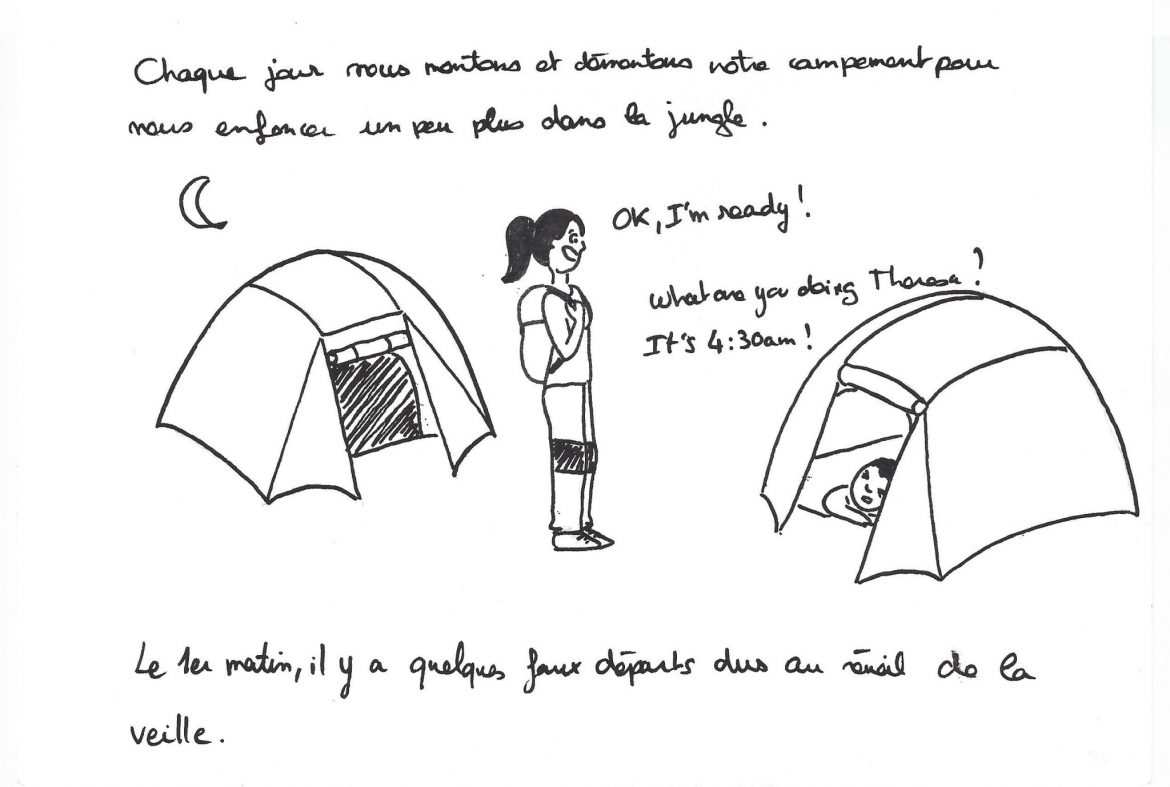 Chaque jour nous montons et démontons notre campement pour
nous enfoncer un peu plus dans la jungle.
OK, I'm ready!
What are you doing Theresa?
It's 4:30am!
Le 1er matin, il y a quelques faux départs dus au réveil de la
veille.